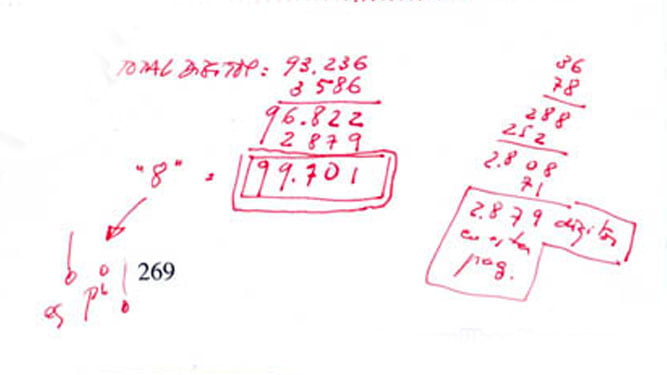 TOTAL DIGITOS: 93.236
3 586
96.822
2 879
"8" = 99.701
269
36
78
288
252
2.808
71
2.879 digitos
en esta
pag.